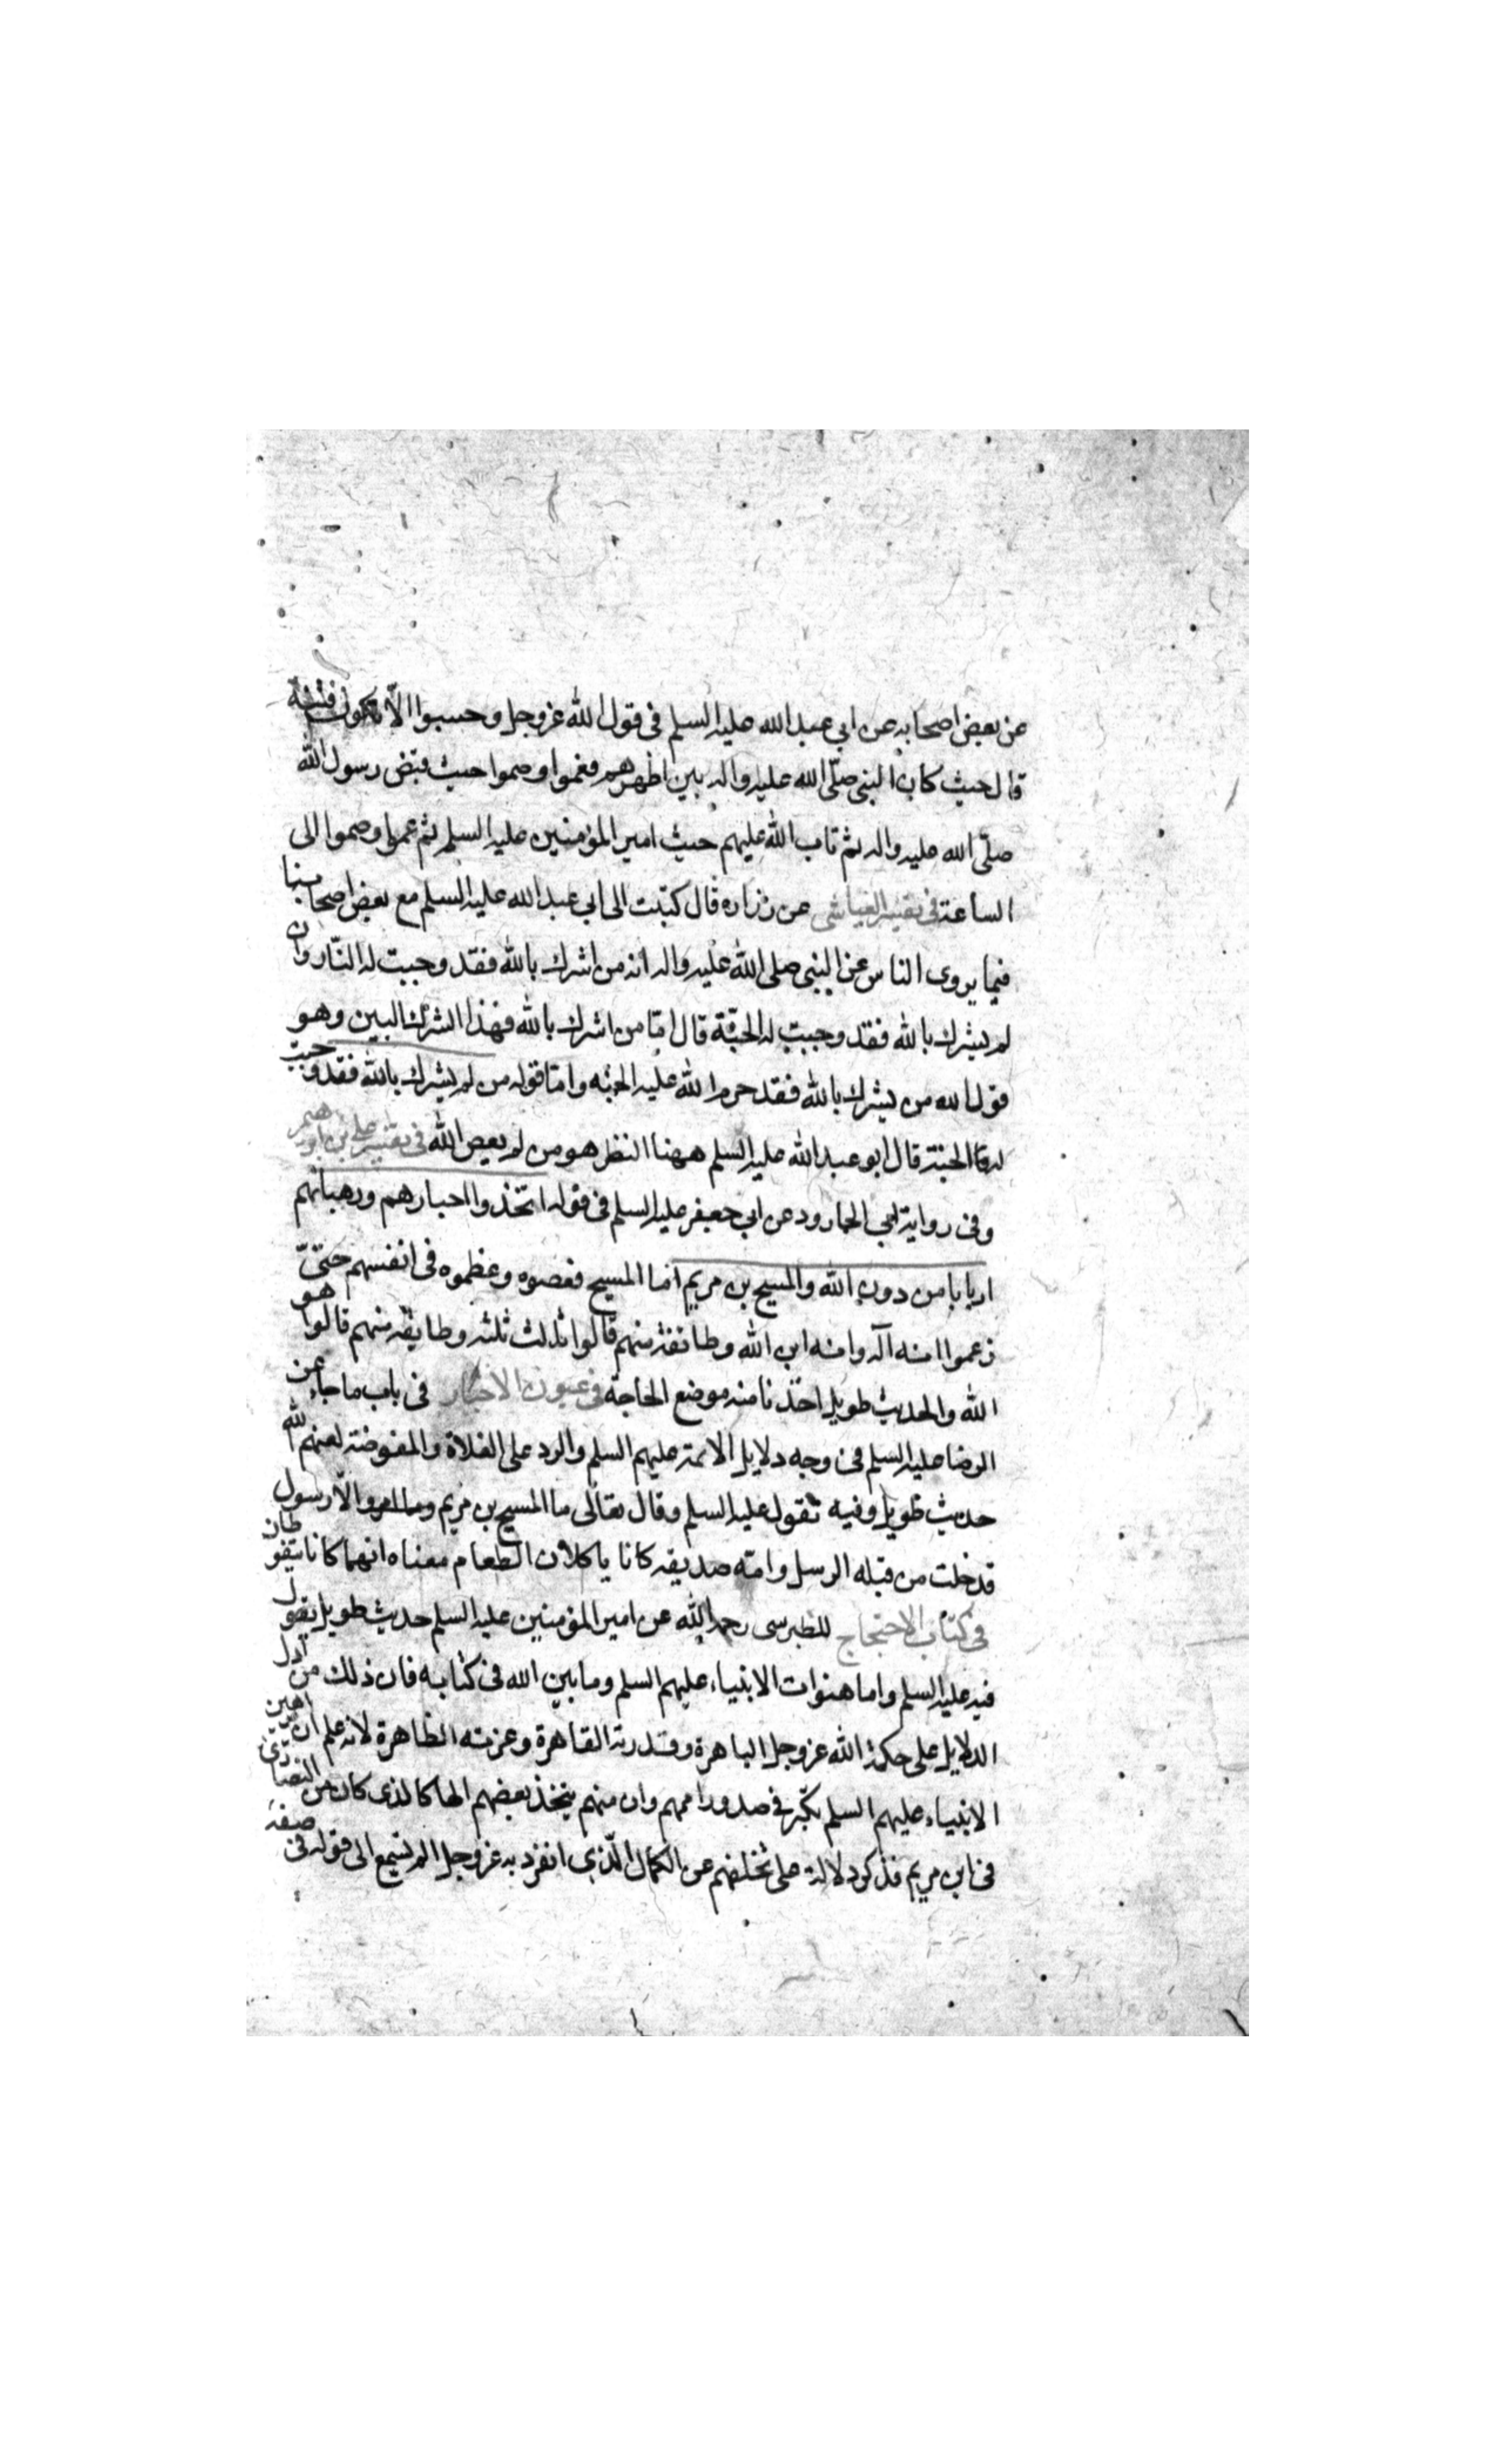 عن بعض اصحابه عن ابي عبد الله عليه السلم في قول الله عز وجل وحسبوا الا تكون فتنة
قال حيث كان النبي صلى الله عليه واله بين اظهرهم فعموا وصموا حيث قبض رسول الله
صلى الله عليه واله ثم تاب الله عليهم حيث امير المؤمنين عليه السلم ثم عموا وصموا الى
الساعة في تفسير العياشي عن زرارة قال كتبت الى ابي عبد الله عليه السلم مع بعض اصحابنا
فيما يروى الناس عن النبي صلى الله عليه واله انه من اشرك بالله فقد وجبت له النار وان
لم يشرك بالله فقد وجبت له الجنة قال اما من اشرك بالله فهذا الشرك البين وهو
قول الله من يشرك بالله فقد حرم الله عليه الجنه واما قوله من لم يشرك بالله فقد وجبت
له الجنة قال ابو عبد الله عليه السلم ههنا النظر هو من لم يعص الله في تفسير علي بن ابراهيم
وفى رواية ابي الجارود عن ابي جعفر عليه السلم فى قوله اتخذوا احبارهم ورهبانهم
اربابا من دون الله والمسيح بن مريم اما المسيح فعصوه وعظموه في انفسهم حتى
زعموا انه اله وانه ابن الله وطائفة منهم قالوا ثالث ثلثه وطايفه منهم قالوا هو
الله والحديث طويل اخذنا منه موضع الحاجة في عيون الاخبار في باب ما جاء عن
الرضا عليه السلم فى وجه دلايل الائمة عليهم السلم والرد على الغلاة والمفوضة لعنهم الله
حديث طويل وفيه تقول عليه السلم وقال تعالى ما المسيح بن مريم الا رسول
قد خلت من قبله الرسل وامه صديقه كانا ياكلان الطعام معناه انهما كانا يتغوطان
في كتاب الاحتجاج للطبرسى رحمه الله عن امير المؤمنين عليه السلم حديث طويل يقول
فيه عليه السلم واما هفوات الانبياء عليهم السلم وما بين الله فى كتابه فان ذلك من ادل
الدلايل على حكمة الله عز وجل الباهرة وقدرته القاهرة وعزته الظاهرة لانه علم ان براهين
الانبياء عليهم السلم تكبر في صدور اممهم وان منهم يتخذ بعضهم الها كالذى كان من النصارى
فى ابن مريم فذكر دلالة على تخلفهم عن الكمال الذي انفرد به عز وجل الم تسمع الى قوله فى صفة